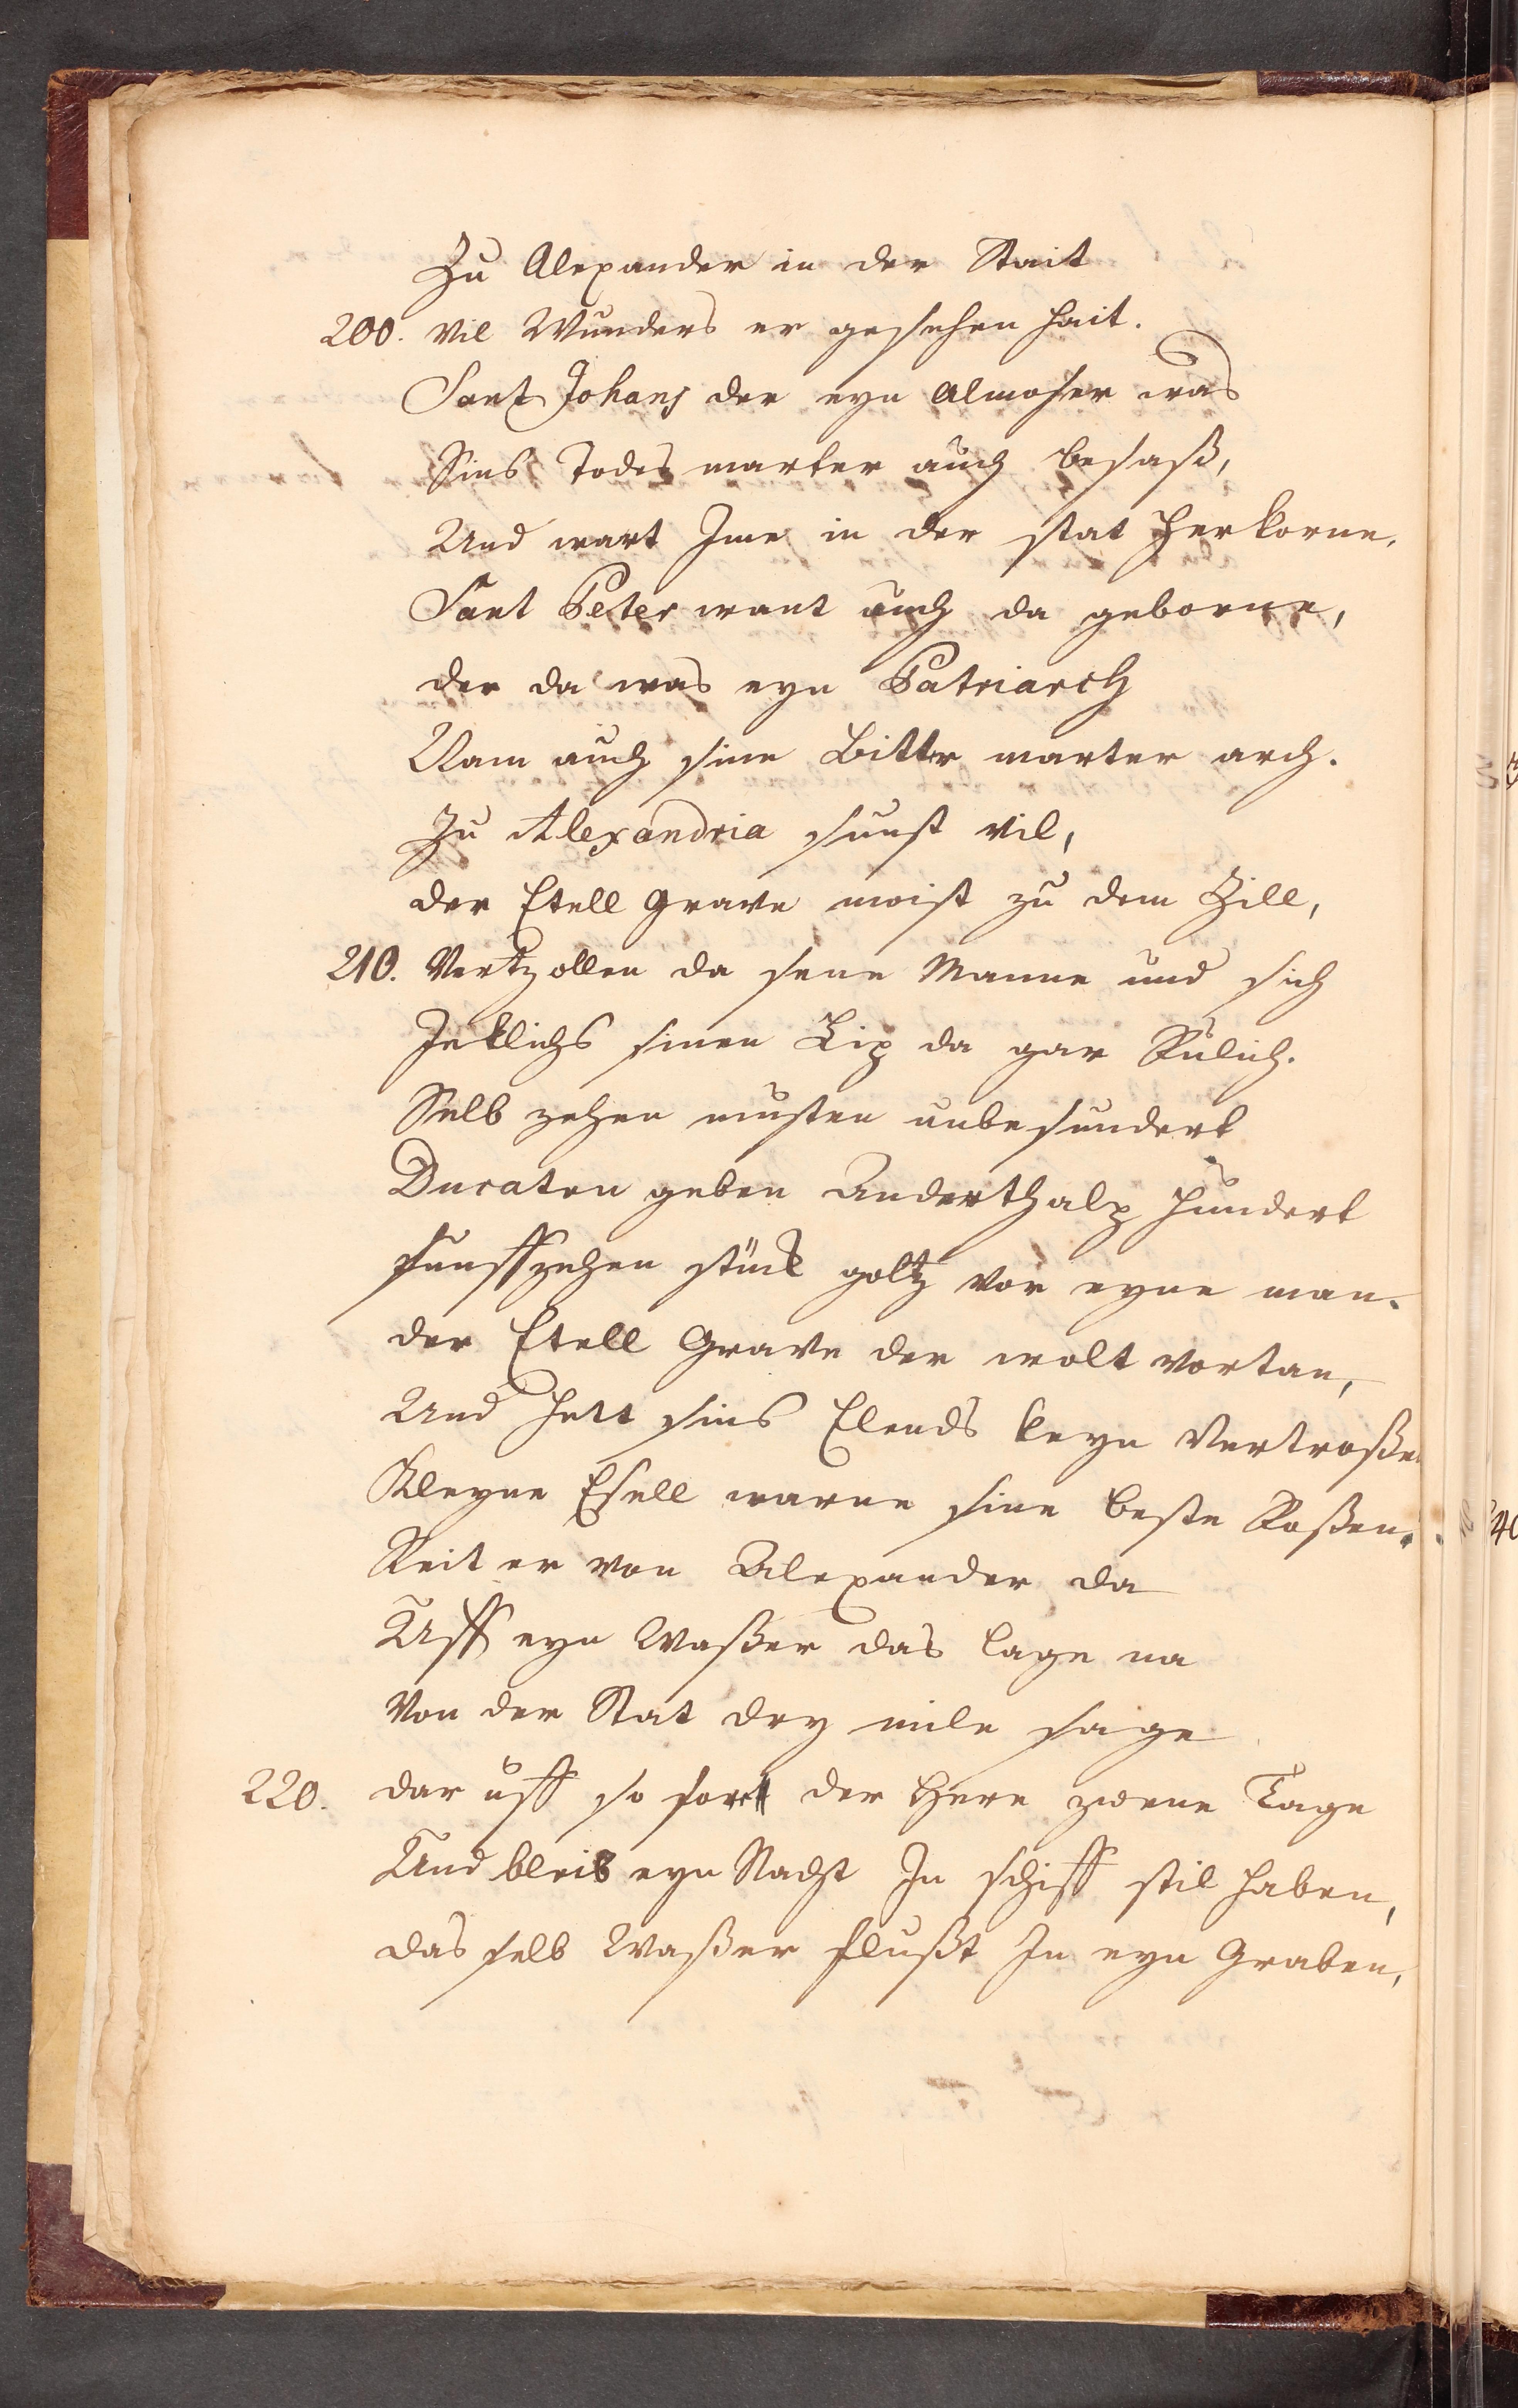 Zu Alexander in der Stait
200. Vil Wunders er gesehen hait.
Sant Johans der eyn Almoser was
Sins Todes marter auch besaß,
Und wart Ime in der stat herkorne,
Sant Peter want auch da geborne,
der da was eyn Patriarch
Nam auch sine Bitter marter arch.
Zu Alexandria sunst vil,
der Etell Grave moist zu dem Zill,
210. Vertzollen da sene Manne und sich
Jetlichs sinen Lip da gar
Selb zehen musten unbesundert
Ducaten geben Anderthalp hundert
funffzehen stück goltz vor eyne man.
der Etell Grave der wolt vortan,
Und hett sins Elends keyn Vertroßen
Kleyne Esell warne sine beste Roßen.
Reit er von Alexander da
Uff eyn Waßer das lage na
Von der Stat dry mile sage
220. dar uff so for der Here zwene Tage
Und bleib eyn Nacht In schiff stil haben,
das selb Waßer flußt In eyn Graben,
40